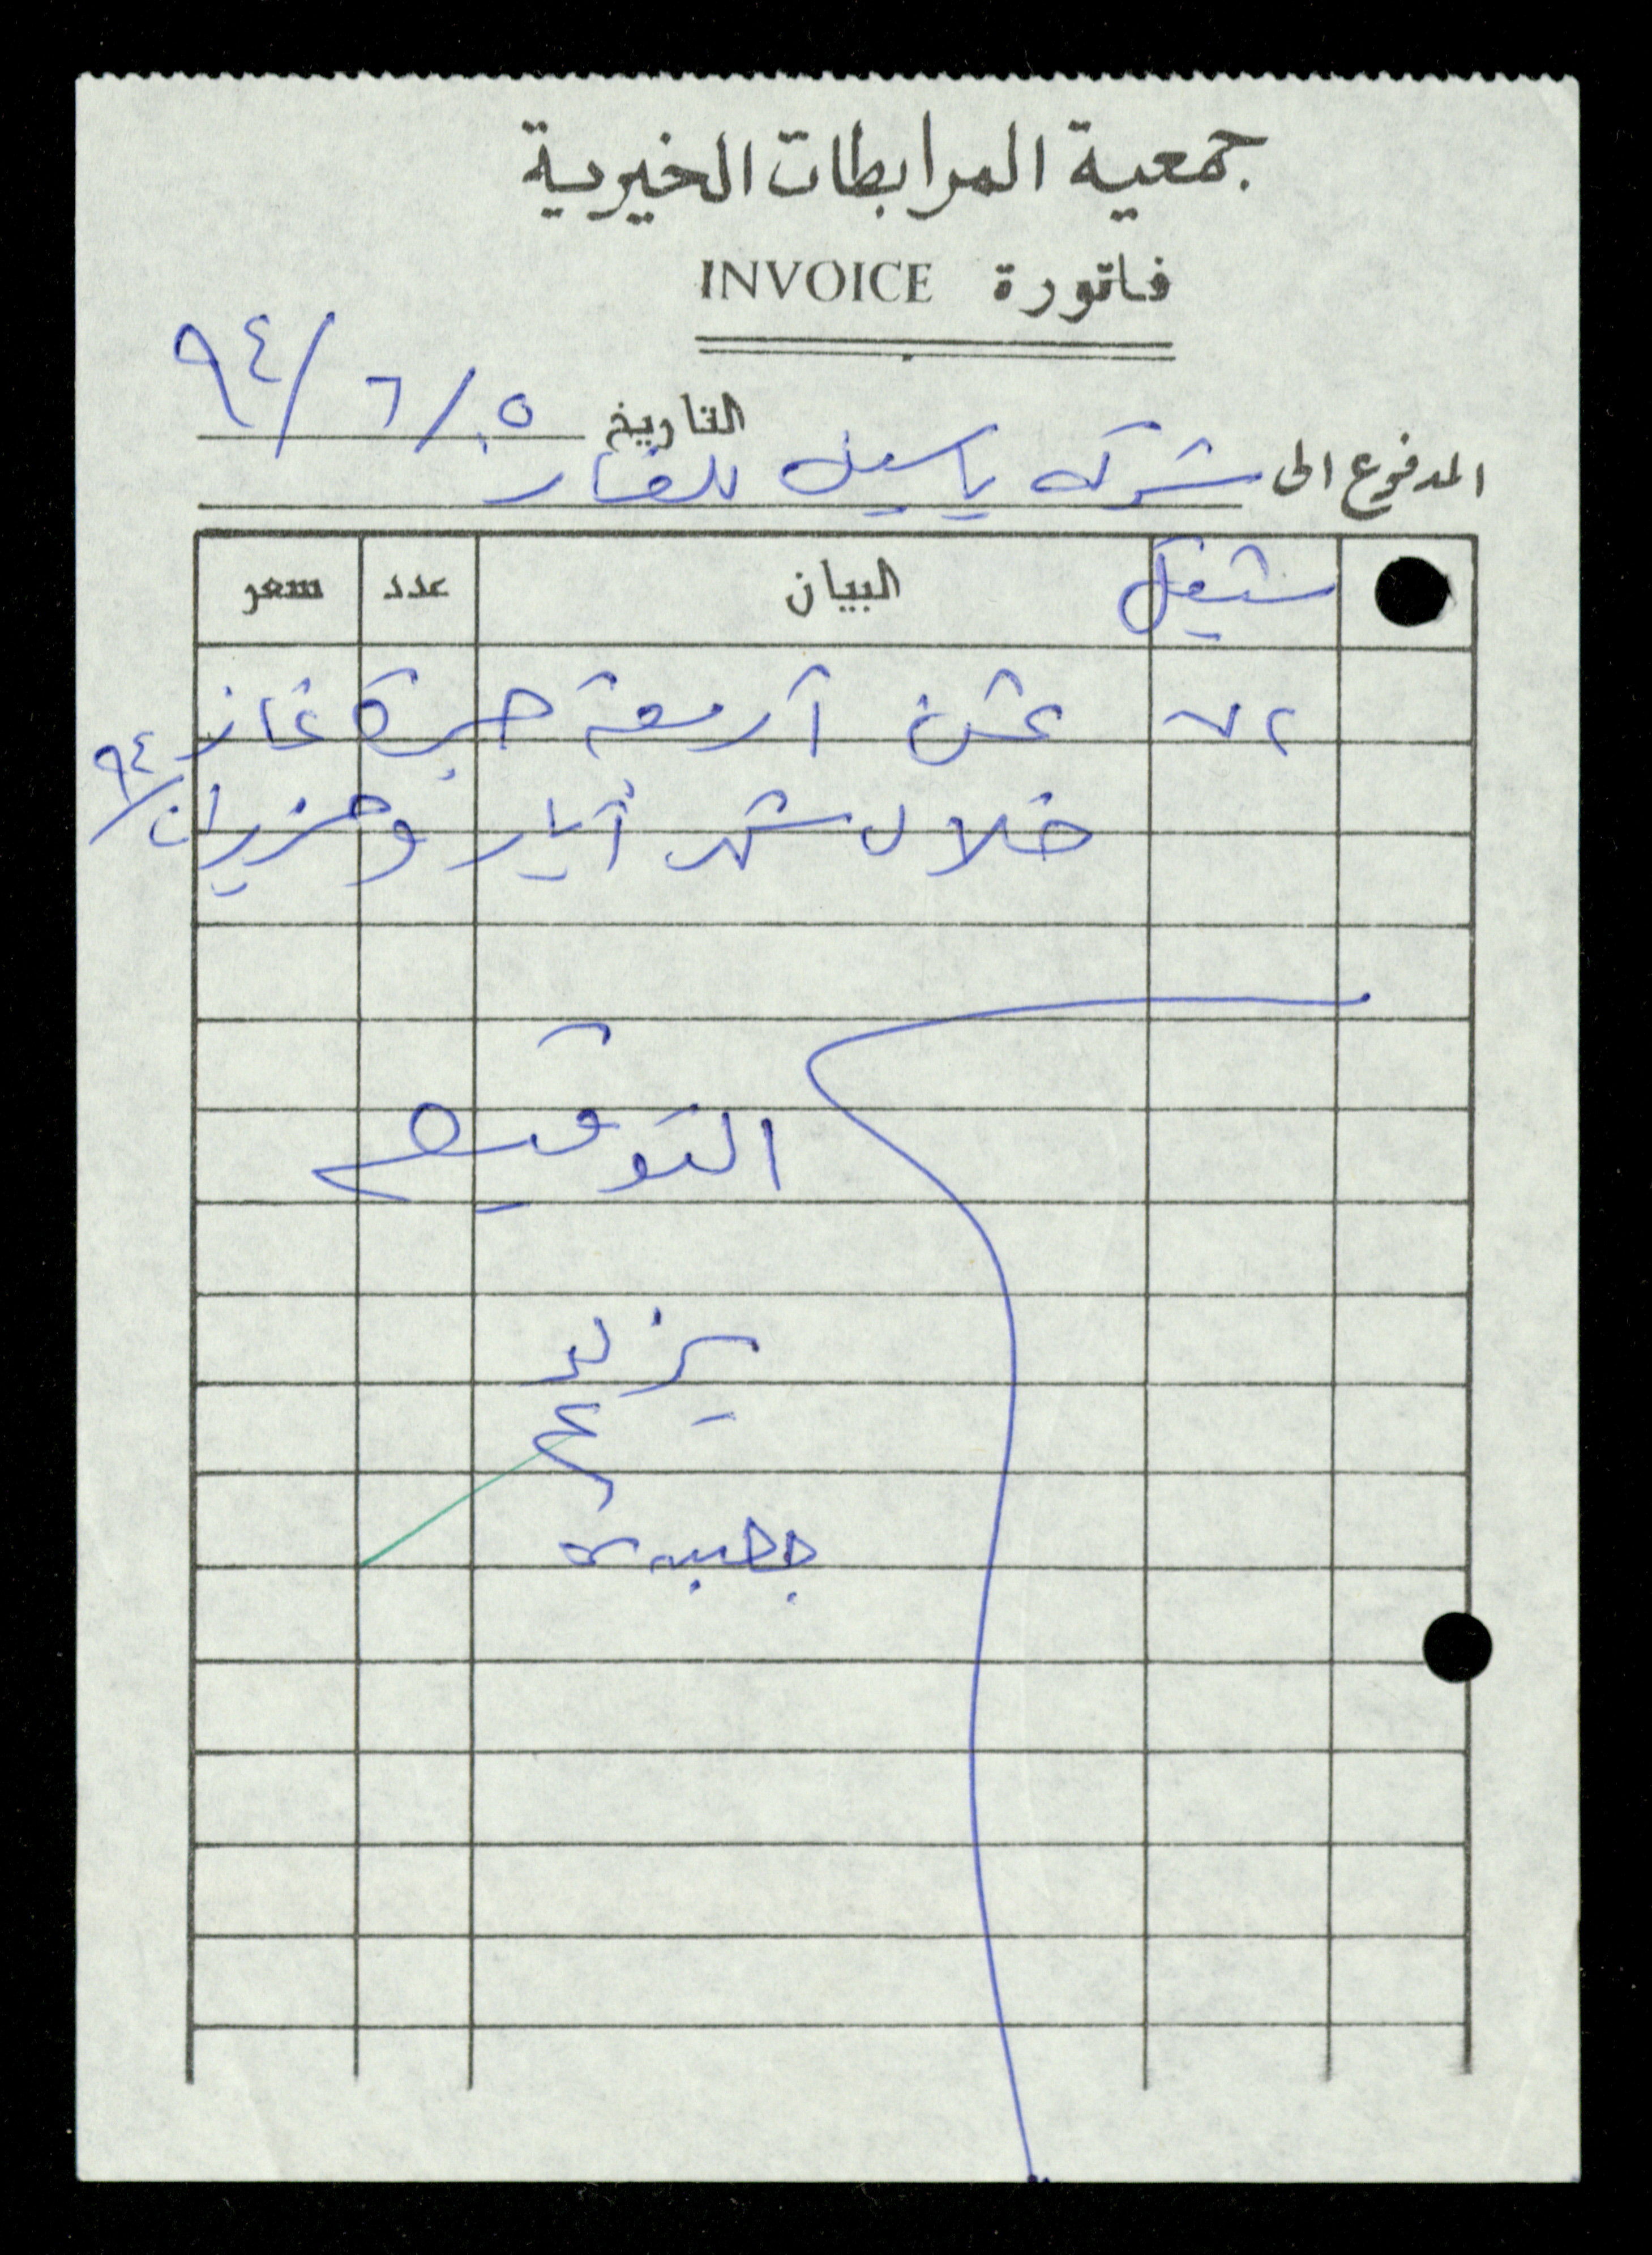 جمعية المرابطات الخيرية
فاتورة INVOICE
التاريخ ٠٥/٦/٩٤
المدفوع الى شركه ياسين للغاز
شيقل البيان عدد سعر
٧٢ ثمن أربعة جرة غاز
خلال شهر أيار وحزيران/٩٤
التوقيع
يزيد